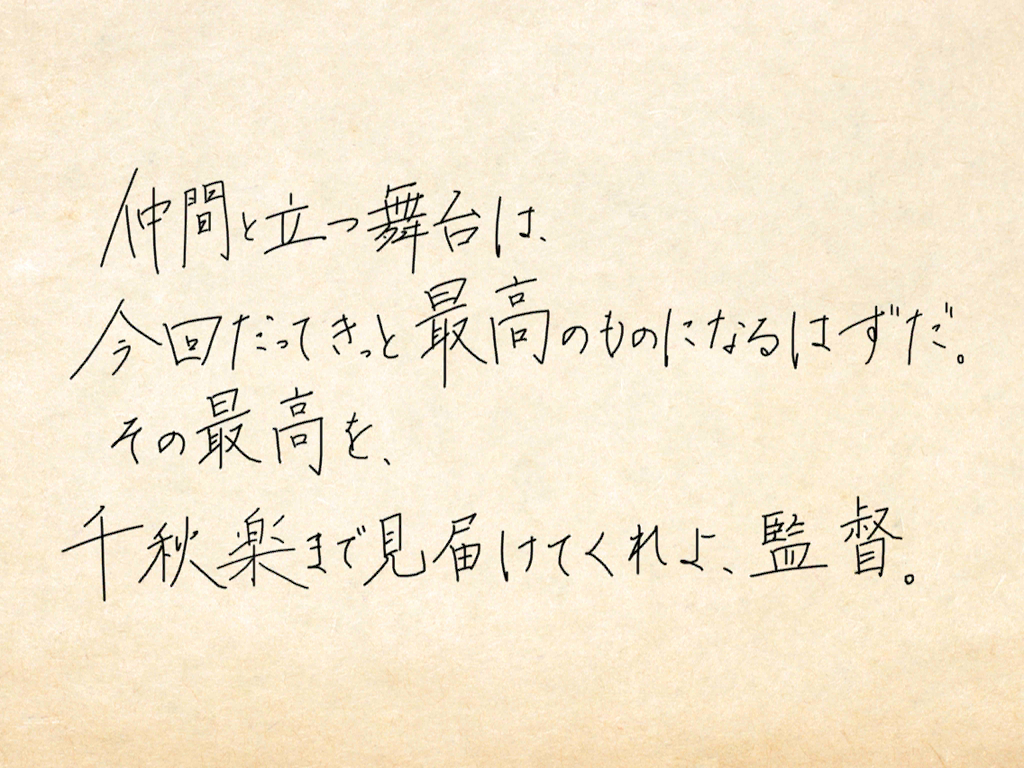 仲間と立つ舞台は、
今回だってきっと最高のものになるはずだ。
その最高を、
千秋楽まで見届けてくれよ、監督。